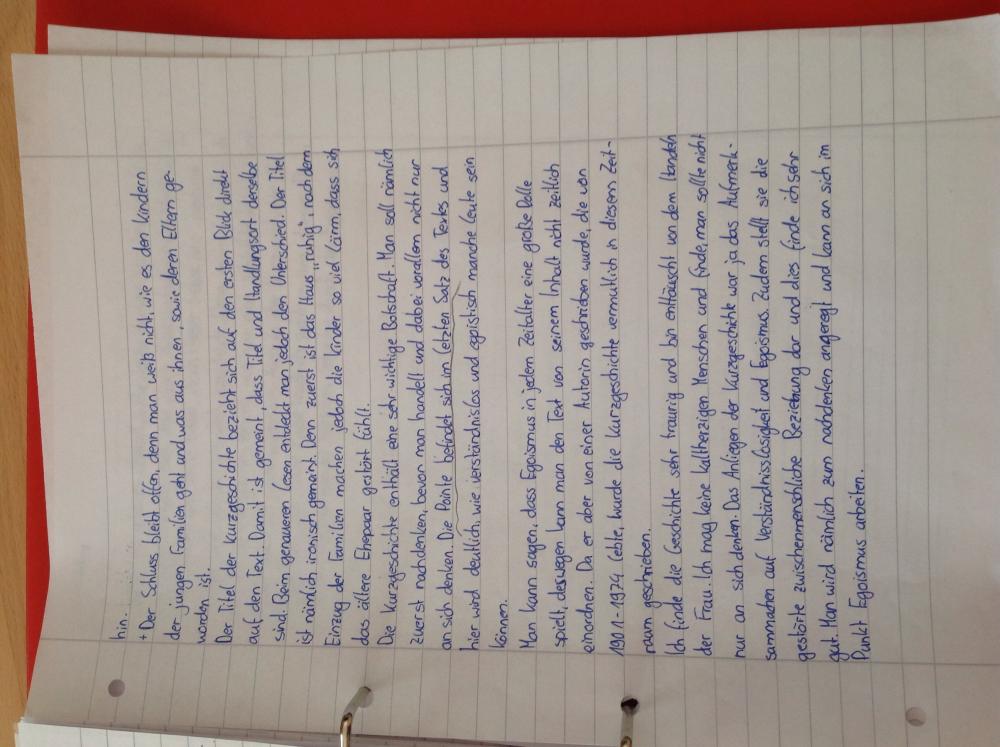 hin.
+ Der Schluss bleibt offen, denn man weiß nicht, wie es den Kindern
der jungen Familien geht und was aus ihnen, sowie deren Eltern ge-
worden ist.
Der Titel der Kurzgeschichte bezieht sich auf den ersten Blick direkt
auf den Text. Damit ist gemeint, dass Titel und Handlungsort derselbe
sind. Beim genaueren Lesen entdeckt man jedoch den Unterschied. Der Titel
ist nämlich ironisch gemeint. Denn zuerst ist das Haus „ruhig", nach dem
Einzug der Familien machen jedoch die Kinder so viel Lärm, dass sich
das ältere Ehepaar gestört fühlt.
Die Kurzgeschichte enthält eine sehr wichtige Botschaft. Man soll nämlich
zuerst nachdenken, bevor man handelt und dabei vorallem nicht nur
an sich denken. Die Pointe befindet sich im letzten Satz des Textes und
hier wird deutlich, wie verständnislos und egoistisch manche Leute sein
können.
Man kann sagen, dass Egoismus in jedem Zeitalter eine große Rolle
spielt, deswegen kann man den Text von seinem Inhalt nicht zeitlich
einordnen. Da er aber von einer Autorin geschrieben wurde, die von
1901-1974 lebte, wurde die Kurzgeschichte vermutlich in diesem Zeit-
raum geschrieben.
Ich finde die Geschichte sehr traurig und bin enttäuscht von dem Handeln
der Frau. Ich mag keine kaltherzigen Menschen und finde, man sollte nicht
nur an sich denken. Das Anliegen der Kurzgeschichte war ja das Aufmerk-
sammachen auf Verständnisslosigkeit und Egoismus. Zudem stellt sie die
gestörte zwischenmenschliche Beziehung dar und dies finde ich sehr
gut. Man wird nämlich zum nahdenken angeregt und kann an sich im
Punkt Egoismus arbeiten.